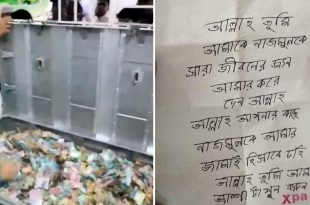 আল্লাহ তুমি
আমাকে নাজমুলকে
সারা জীবনের জন্য
আমার করে
দেন আল্লাহ
আল্লাহ আপনার কাছে
নাজমুলকে আমার
জামাই হিসাবে চাই
আল্লাহ তুমি আমার
Xpa